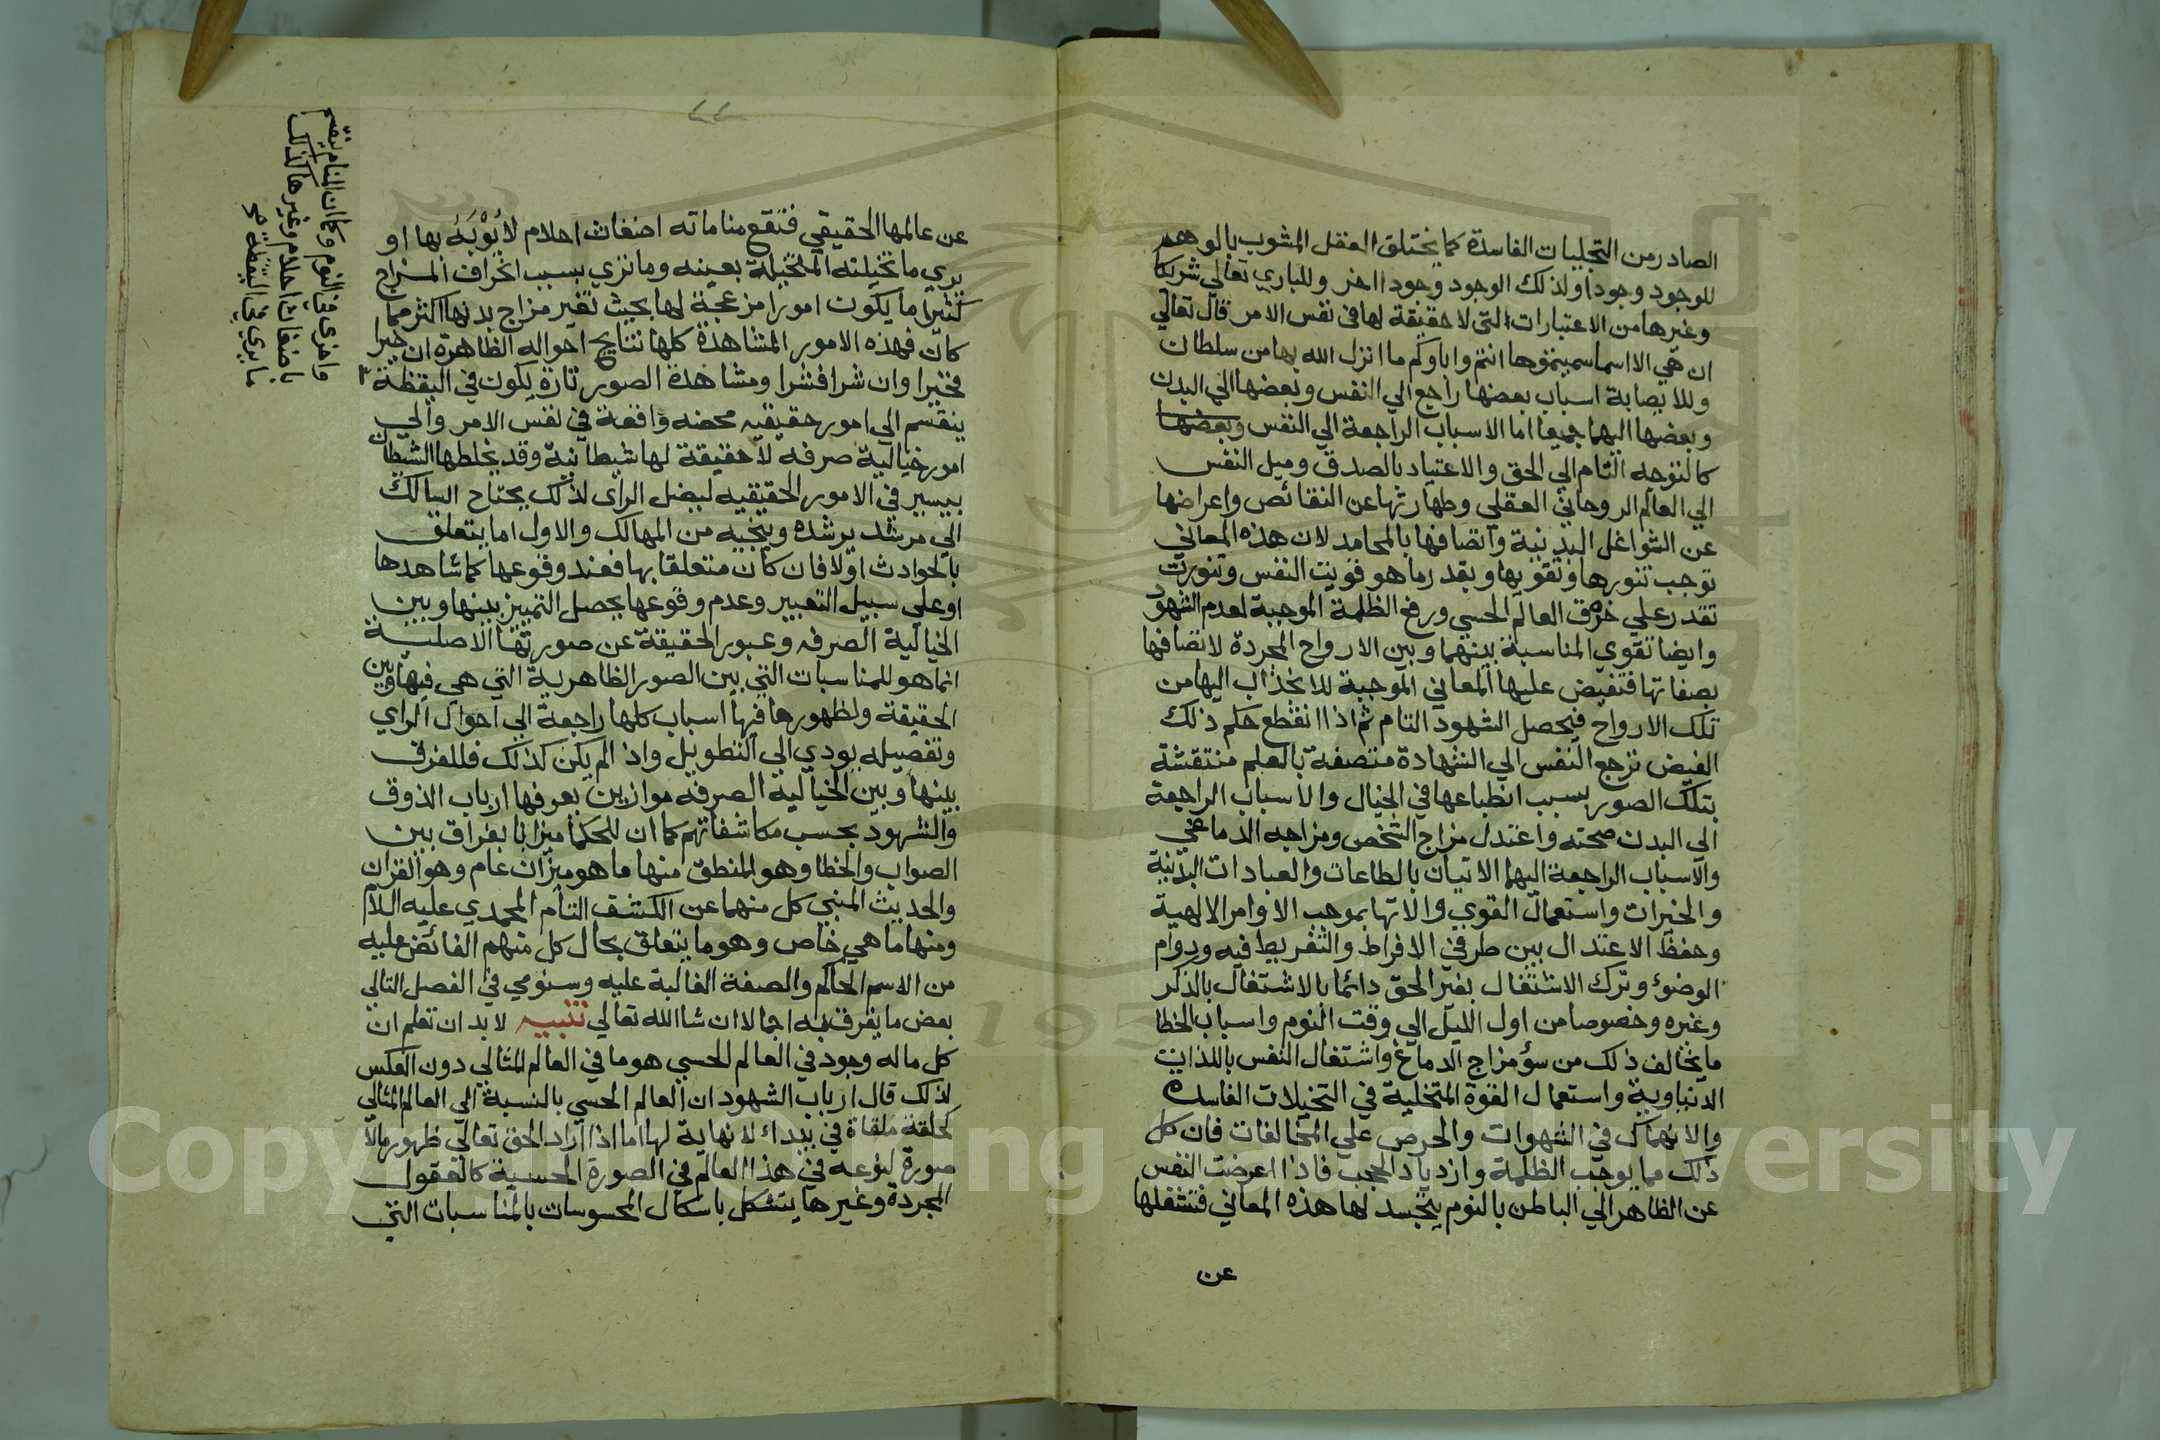 الصادر من التجليات الفاسدة كما يختلق العقل المشوب بالوهم
للوجود وجودا ولذلك الوجود وجودا اخر وللباري تعالي شريكا
وغيرها من الاعتبارات التي لا حقيقة لها في نفس الامر قال تعالي
ان هي الا اسما سميتموها انتم واباوكم ما انزل الله بها من سلطان
وللاصابة اسباب بعضها راجع الي النفس وبعضها الي البدن
وبعضها اليهما جميعا اما الاسباب الراجعة الي النفس وبعضها
كالتوجه التام الي الحق والاعتياد بالصدق وميل النفس
الي العالم الروحاني العقلي وطهارتها عن النقائص واعراضها
عن الشواغل البدنية واتصافها بالمحامد لان هذه المعاني
توجب تنورها وتقويها وبقدر ما هو قويت النفس وتنورت
تقدر علي خرق العالم الحسي ورفع الظلمة الموجبة لعدم الشهود
وايضا تقوي المناسبة بينهما وبين الارواح المجردة لاتصافها
بصفاتها فتفيض عليها المعاني الموجبة للانجذاب اليها من
تلك الارواح فيحصل الشهود التام ثم اذا انقطع حكم ذلك
الفيض ترجع النفس الي الشهادة متصفة بالعلم منتقشة
بتلك الصور بسبب انطباعها في الخيال والاسباب الراجعة
الي البدن صحته واعتدل مزاج الشخص ومزاجه الدماغي
والاسباب الراجعة اليهما الاتيان بالطاعات والعبادات البدنية
والخيرات واستعمال القوي والاتها بموجب الاوامر الالهية
وحفظ الاعتدال بين طرفي الافراط والتفريط فيه ودوام
الوضوء وترك الاشتغال بغير الحق دائما بالاشتغال بالذكر
وغيره وخصوصا من اول الليل الي وقت النوم واسباب الخطا
ما يخالف ذلك من سؤ مزاج الدماغ واشتغال النفس باللذات
الدنياوية واستعمال القوة المتخلية في التخيلات الفاسده
والانهماك في الشهوات والحرص علي المخالفات فان كل
ذلك مما يوجب الظلمة وازدياد الحجب فاذا اعرضت النفس
عن الظاهر الي الباطن بالنوم يتجسد لها هذه المعاني فتشغلها
عن
عن عالمها الحقيقي فتقع مناماته اضغاث احلام لا يؤبه بها او
يري ما تخيلته المتخيلة بعينه وما تري بسبب انحراف المزاج
كثيرا ما يكون امورا مزعجة لها بحيث تغير مزاج بدنها اكثر مما
كان فهذه الامور المشاهدة كلها نتايج احواله الظاهرة ان خيرا
فخيرا وان شرا فشرا ومشاهدة الصور تارة يكون في اليقظة
ينقسم الي امور حقيقيه محضه واقعة في نفس الامر والي
امور خيالية صرفه لا حقيقة لها شيطانية وقد يخلطها الشيطان
بيسير في الامور الحقيقيه ليضل الراي لذلك يحتاج السالك
الي مرشد يرشده وينجيه من المهالك والاول اما يتعلق
بالحوادث اولا فان كان متعلقا بها فعند وقوعها كما شاهدها
او علي سبيل التعبير وعدم وقوعها يحصل التمييز بينها وبين
الخيالية الصرفه وعبور الحقيقة عن صورتها الاصلية
انما هو للمناسبات التي بين الصور الظاهرية التي هي فيها وبين
الحقيقة ولظهورها فيها اسباب كلها راجعة الي احوال الراي
وتفصيله يودي الي التطويل واذا لم يكن كذلك فللفرق
بينها وبين الخيالية الصرفه موازين يعرفها ارباب الذوق
والشهود بحسب مكاشفاتهم كما ان للحكما ميزانا يفراق بين
الصواب والخطا وهو المنطق منها ما هو ميزان عام وهو القران
والحديث المنبي كل منهما عن الكشف التام المحمدي عليه السلام
ومنها ما هي خاص وهو ما يتعلق بحال كل منهم الفائض عليه
من الاسم الحاكم والصفة الغالبة عليه وسنومي في الفصل التالي
بعض ما يفرق به اجمالا ان شا الله تعالي تنبيه لا بد ان تعلم ان
كل ماله وجود في العالم الحسي هو ما في العالم المثالي دون العكس
لذلك قال ارباب الشهود ان العالم الحسي بالنسبة الي العالم المثالي
كحلقة ملقاة في بيداء لا نهاية لها اما اذا اراد الحق تعالي ظهور مالا
صورة لنوعه في هذا العالم في الصورة الحسية كالعقول
المجردة وغيرها يتشكل باشكال المحسوسات بالمناسبات التي
واخري في النوم وكما ان المنام ينقسم
باضغاث احلام وغيرها كذلك
ما يري في اليقظة
Copyright © King Saud University
195